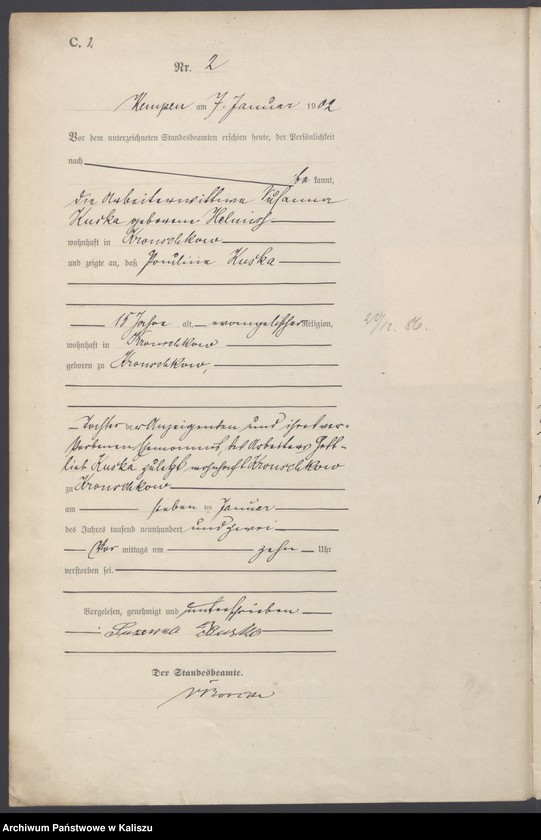 C. 1.
Nr. 2
Kempen am 7. Januar 1902
Vor dem unterzeichneten Standesbeamten erschien heute, der Persönlichkeit
nach
be kannt,
die Arbeiterwittwe Susanna
Kuska geborene
wohnhaft in Kronschkow
und zeigte an, daß Pauline Kuska
15 Jahre alt, evangelischer Religion,
wohnhaft in Kronschkow
geboren zu Kronschkow,
Tochter der Anzeigenden und ihres ver-
storbenen Ehemannes, des Arbeiters Gott-
lieb Kuska zuletzt wohnhaft Kronschkow
zu Kronschkow
am sieben ten Januar
des Jahres tausend neunhundert und zwei
Vor mittags um zehn Uhr
verstorben sei.
Vorgelesen, genehmigt und unterschrieben
Kuska
Der Standesbeamte.
12. 86.
Archiwum Państwowe w Kaliszu